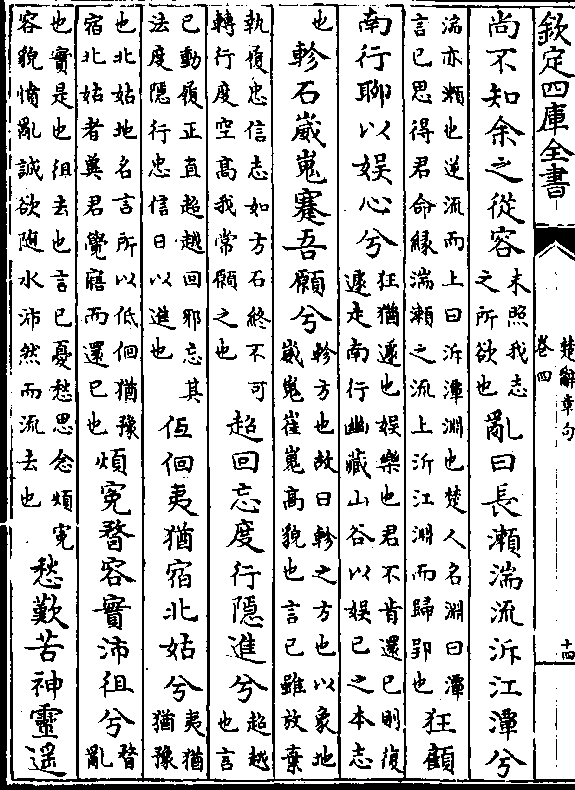 欽定四庫全書
楚辭章句
卷四
十四
尚不知余之從容未照我志之所欲也亂曰長瀬湍流泝江潭兮
湍亦瀬也逆流而上曰泝潭淵也楚人名淵曰潭言已思得君命縁湍瀬之流上泝江淵而歸郢也狂顧
南行聊以娱心兮狂猶遽也娱樂也君不肯還已則復遽走南行幽藏山谷以娱已之本志
也軫石崴嵬蹇吾願兮軫方也故曰軫之方也以象地崴嵬崔嵬高貌也言已雖放棄
執履忠信志如方石終不可轉行度空高我常願之也超回忘度行隠進兮超越也言
已動履正直超越回邪忘其法度隠行忠信日以進也低佪夷猶宿北姑兮夷猶猶豫
也北姑地名言所以低佪猶豫宿北姑者冀君覺寤而還已也煩寃瞀容實沛徂兮瞀亂
也實是也徂去也言已憂愁思念煩寃容貌憒亂誠欲随水沛然而流去也愁歎苦神靈遥